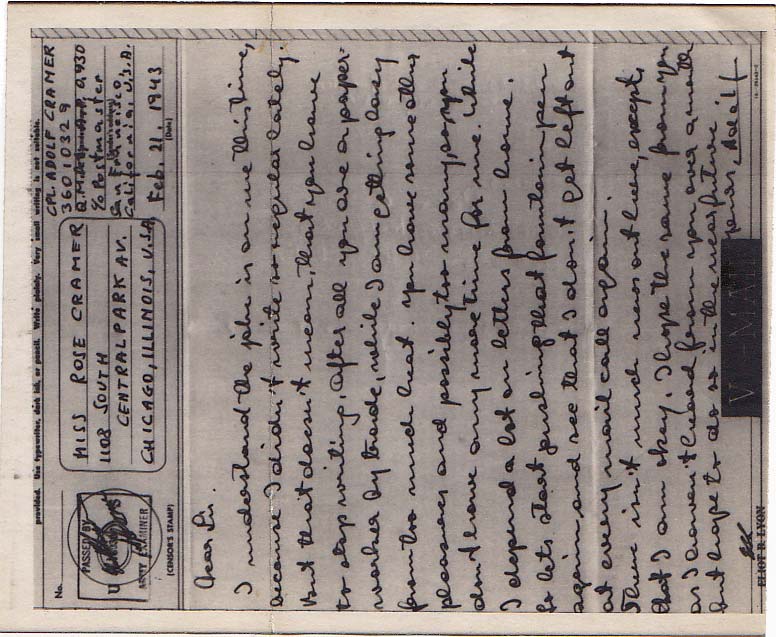 provided. Use typewriter, dark ink, or pencil. Write plainly. Very small writing is not suitable.
No.
PASSED BY
U
ARMY EXAMINER
(CENSOR'S STAMP)
MISS ROSE CRAMER
1108 SOUTH
CENTRAL PARK AV.
CHICAGO, ILLINOIS, U.S.A.
CPL. ADOLF CRAMER
36010329
A.P.O. 930
c/o Postmaster
San Francisco,
California, U.S.A.
Feb. 21 1943
(Date)
Dear Sis.
I understand the joke is on me this time,
because I didn't write so regular lately
but that doesn't mean, that you have
to stop writing. After all you are a paper-
worker by trade, while I am getting lazy
from too much heat. You have some other
pleasures and possibly too many, so you
don't have any more time for me. While
I depend a lot on letters from home.
So lets start pushing that fountain pen
again and see that I don't get left out
at every mail call again.
There isn't much news out here, except,
that I am okay. I hope the same from you
as I haven't heard from you over a month
but hope to do so in the near future
Yours, Adolf
V-MAIL
ELIOT R. LYON